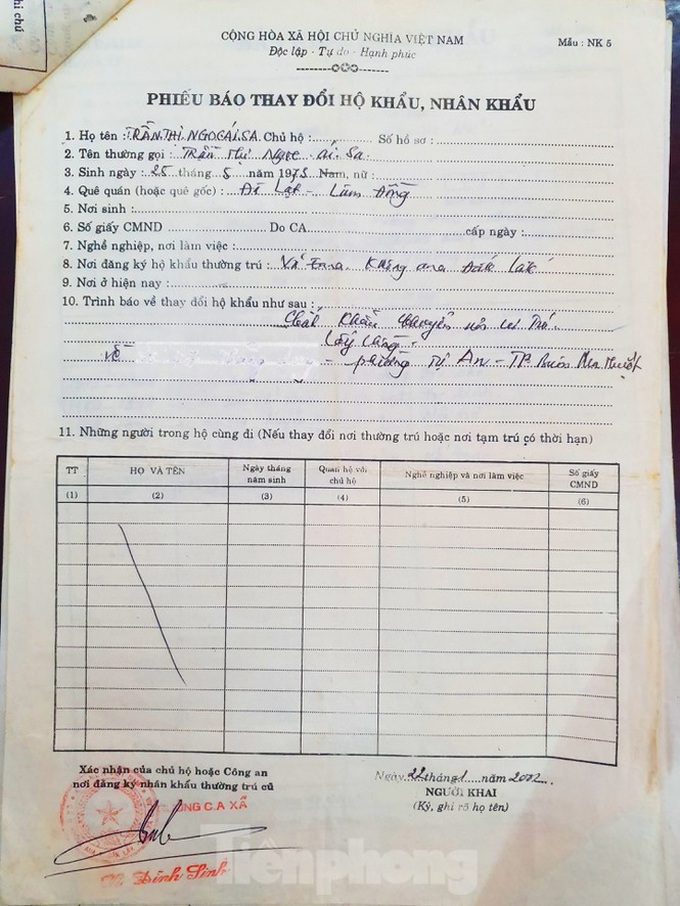 hi chú
CỘNG HÒA XÃ HỘI CHỦ NGHĨA VIỆT NAM
Mẫu : NK 5
Độc lập - Tự do - Hạnh phúc
PHIẾU BÁO THAY ĐỔI HỘ KHẨU, NHÂN KHẨU
1. Họ tên : TRẦN THỊ NGỌC ÁI SA Chủ hộ : Số hồ sơ :
2. Tên thường gọi : Trần Thị Ngọc Ái Sa
3. Sinh ngày : 25 tháng 8 năm 1975 Nam, nữ :
4. Quê quán (hoặc quê gốc) : Đà Lạt - Lâm Đồng
5. Nơi sinh :
6. Số giấy CMND Do CA cấp ngày :
7. Nghề nghiệp, nơi làm việc :
8. Nơi đăng ký hộ khẩu thường trú : Krông ana Đăk Lăk
9. Nơi ở hiện nay :
10. Trình báo về thay đổi hộ khẩu như sau :
Cắt Khẩu chuyển
Về - phường Tự An - TP Buôn Ma Thuột
11. Những người trong hộ cùng đi (Nếu thay đổi nơi thường trú hoặc nơi tạm trú có thời hạn)
TT HỌ VÀ TÊN Ngày tháng năm sinh Quan hệ với chủ hộ Nghề nghiệp và nơi làm việc Số giấy CMND
(1) (2) (3) (4) (5) (6)
Xác nhận của chủ hộ hoặc Công an
nơi đăng ký nhân khẩu thường trú cũ
Ngày 22 tháng 1 năm 2002
NGƯỜI KHAI
(Ký, ghi rõ họ tên)
C.A XÃ
Đình Sinh
Tiênphong